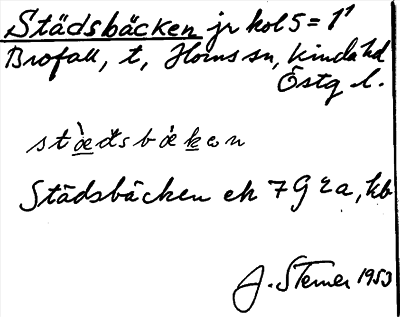 Städsbäcken jr kol 5 = 1¹
Brofall, t, Horns sn, Kinda hd
Östg l.
stæ̀dsbǽkɘn
Städsbäcken ek 7G 2a, kb
J. Sterner 1953